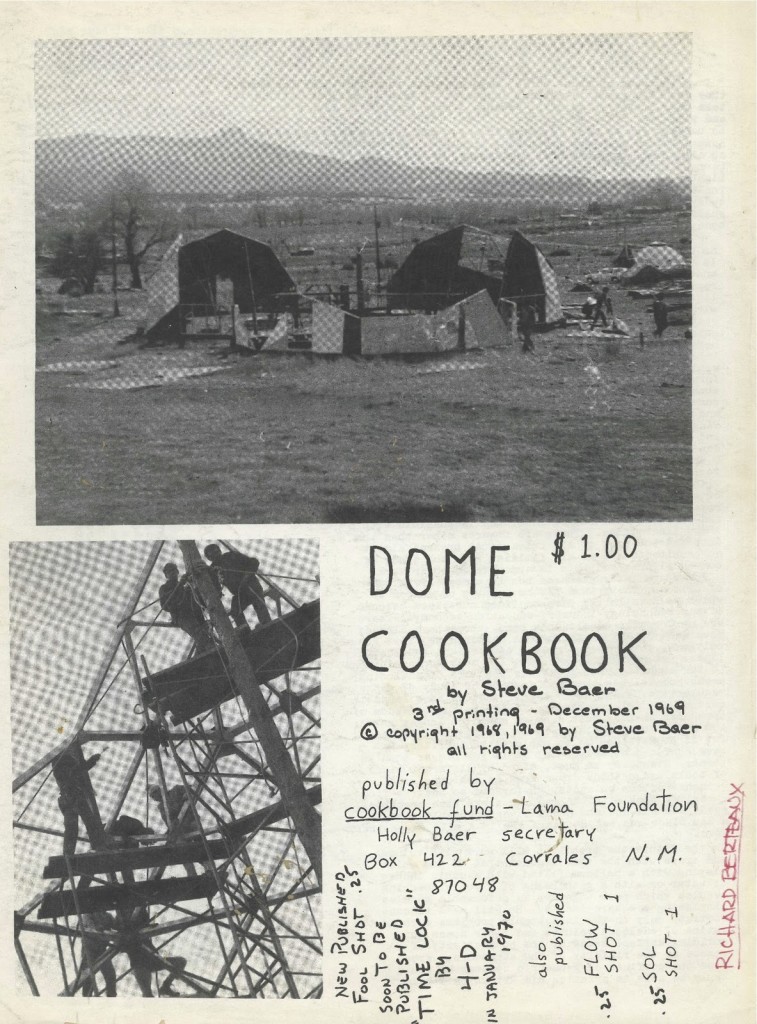 DOME $ 1.00
COOKBOOK
by Steve Baer
3rd printing - December 1969
© copyright 1968, 1969 by Steve Baer
all rights reserved
published by
cookbook fund - Lama Foundation
Holly Baer secretary
Box 422 Corrales N.M.
87048
NEW PUBLISHED
FOOL SHOT .25
SOON TO BE
PUBLISHED
"TIME LOCK"
BY
4-D
IN JANUARY
1970
also
published
.25 FLOW
SHOT 1
.25 SOL
SHOT 1
RICHARD BERTEAUX